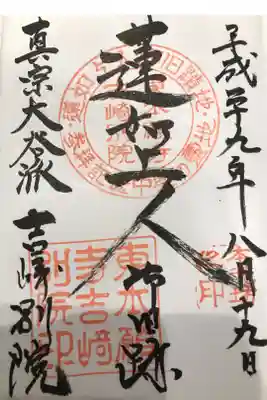 平成二十九年 八月十九日
蓮如上人
御旧跡
真宗大谷派 吉崎別院
東本願
寺吉崎
別院印